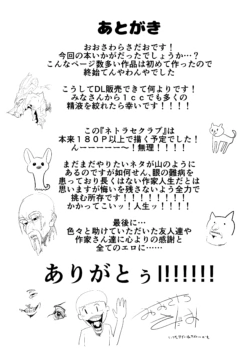 あとがき
おおさわらさだおです！
今回の本いかがだったでしょうか…？
こんなページ数多い作品は初めて作ったので
終始てんやわんやでした
こうしてDL販売できて何よりです！
みなさんから1ccでも多くの
精液を絞れたら幸いです！！！！
この『ネトラセクラブ』は
本来180P以上で描く予定でした！
んーーーーーー！無理！！！！
まだまだやりたいネタが山のように
あるのですが如何せん、眼の難病を
患っており長くはない作家人生だとは
思いますが悔いを残さないよう全力で
挑む所存です！！！！！！！！
かかってこいっ！人生ッ！！！！
最後に…
色々と助けていただいた友人達や
作家さん達に心よりの感謝と
全てのエロに……
ありがとぅ!!!!!!!!